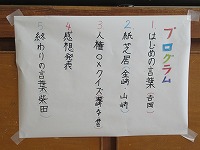 プログラム
1はじめの言葉(吉岡)
2紙芝居(金崎、山崎)
3人権○×クイズ
4感想発表
5終わりの言葉(柴田)